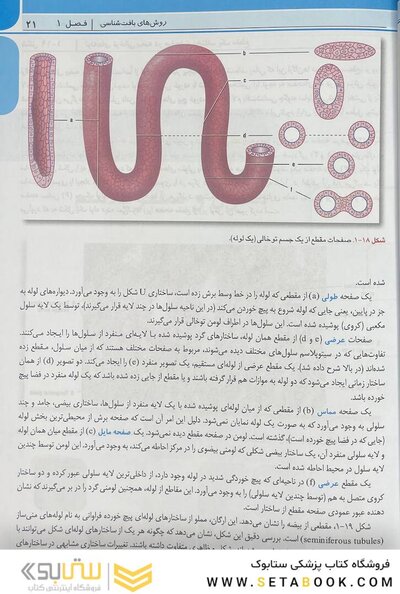 روش‌های بافت‌شناسی | فـصـل ۱ | ۲۱
a
b
c
d
e
f
شکل ۱۸-۱. صفحات مقطع از یک جسم توخالی (یک لوله).
شده است.
یک صفحه طولی (a) از مقطعی که لوله را در خط وسط برش زده است، ساختاری U شکل را به وجود می‌آورد. دیواره‌های لوله به
جز در پایین، یعنی جایی که لوله شروع به پیچ خوردن می‌کند (در این ناحیه سلول‌ها در چند لایه قرار می‌گیرند)، توسط یک لایه سلول
مکعبی (کروی) پوشیده شده است. این سلول‌ها در اطراف لومن توخالی قرار می‌گیرند.
صفحات عرضی (d و e) از مقطع همان لوله، ساختارهای گرد پوشیده شده با یک‌لایه‌ی منفرد از سلول‌ها را ایجـاد می‌کنند.
تفاوت‌هایی که در سیتوپلاسم سلول‌های مختلف دیده می‌شوند، مربوط به صفحات مختلف هستند که از میان سلول، مقطع زده
شده‌اند (در بالا شرح داده شد). یک مقطع عرضی از لوله‌ای مستقیم، یک تصویر منفرد (e) را ایجاد می‌کند. دو تصویر (d) از همان
ساختار زمانی ایجاد می‌شود که دو لوله به موازات هم قرار گرفته باشند و یا مقطع از جایی زده شده باشد که یک لوله منفرد در فضا پیچ
خورده باشد.
یک صفحه مماس (b) از مقطعی که از میان لوله‌ای پوشیده شده با یک لایه منفرد از سلول‌ها، ساختاری بیضی، جامد و چند
سلولی به وجود می‌آورد که به صورت یک لوله نمایان نمی‌شود. دلیل این امر آن است که صفحه برش از محیطی‌ترین بخش لوله
(جایی که در فضا پیچ خورده است)، گذشته است. لومن در صفحه مقطع دیده نمی‌شود. یک صفحه مایل (c) از مقطع میان همان لوله
و لایه سلولی منفرد آن، یک ساختار بیضی شکلی که لومنی بیضوی را در مرکز احاطه می‌کند، به وجود می‌آورد. این لومن توسط چندین
لایه سلول در محیط احاطه شده است.
یک مقطع عرضی (f) در ناحیه‌ای که پیچ خوردگی شدید در لوله وجود دارد، از داخلی‌ترین لایه سلولی عبور کرده و دو ساختار
کروی متصل به هم (توسط چندین لایه سلولی) را به وجود می‌آورد. این مقاطع از لوله، همچنین لومنی گرد را در بر می‌گیرند که نشان
دهنده عبور عمودی صفحه مقطع از ساختار است.
شکل ۱۹-۱، مقطعی از بیضه را نشان می‌دهد. این ارگان، مملو از ساختارهای لوله‌ای پیچ خورده فراوانی به نام لوله‌های منی‌ساز
(seminiferous tubules) است. بررسی دقیق این شکل، نشان می‌دهد که چگونه هر یک از ساختارهای لوله‌ای شکل می‌توانند با
ظاهری متفاوت داشته باشند. تغییرات ساختاری مشابهی در ساختارهای
فروشگاه کتاب پزشکی ستابوک
WWW.SETABOOK.COM
ستابوک
فروشگاه اینترنتی کتاب